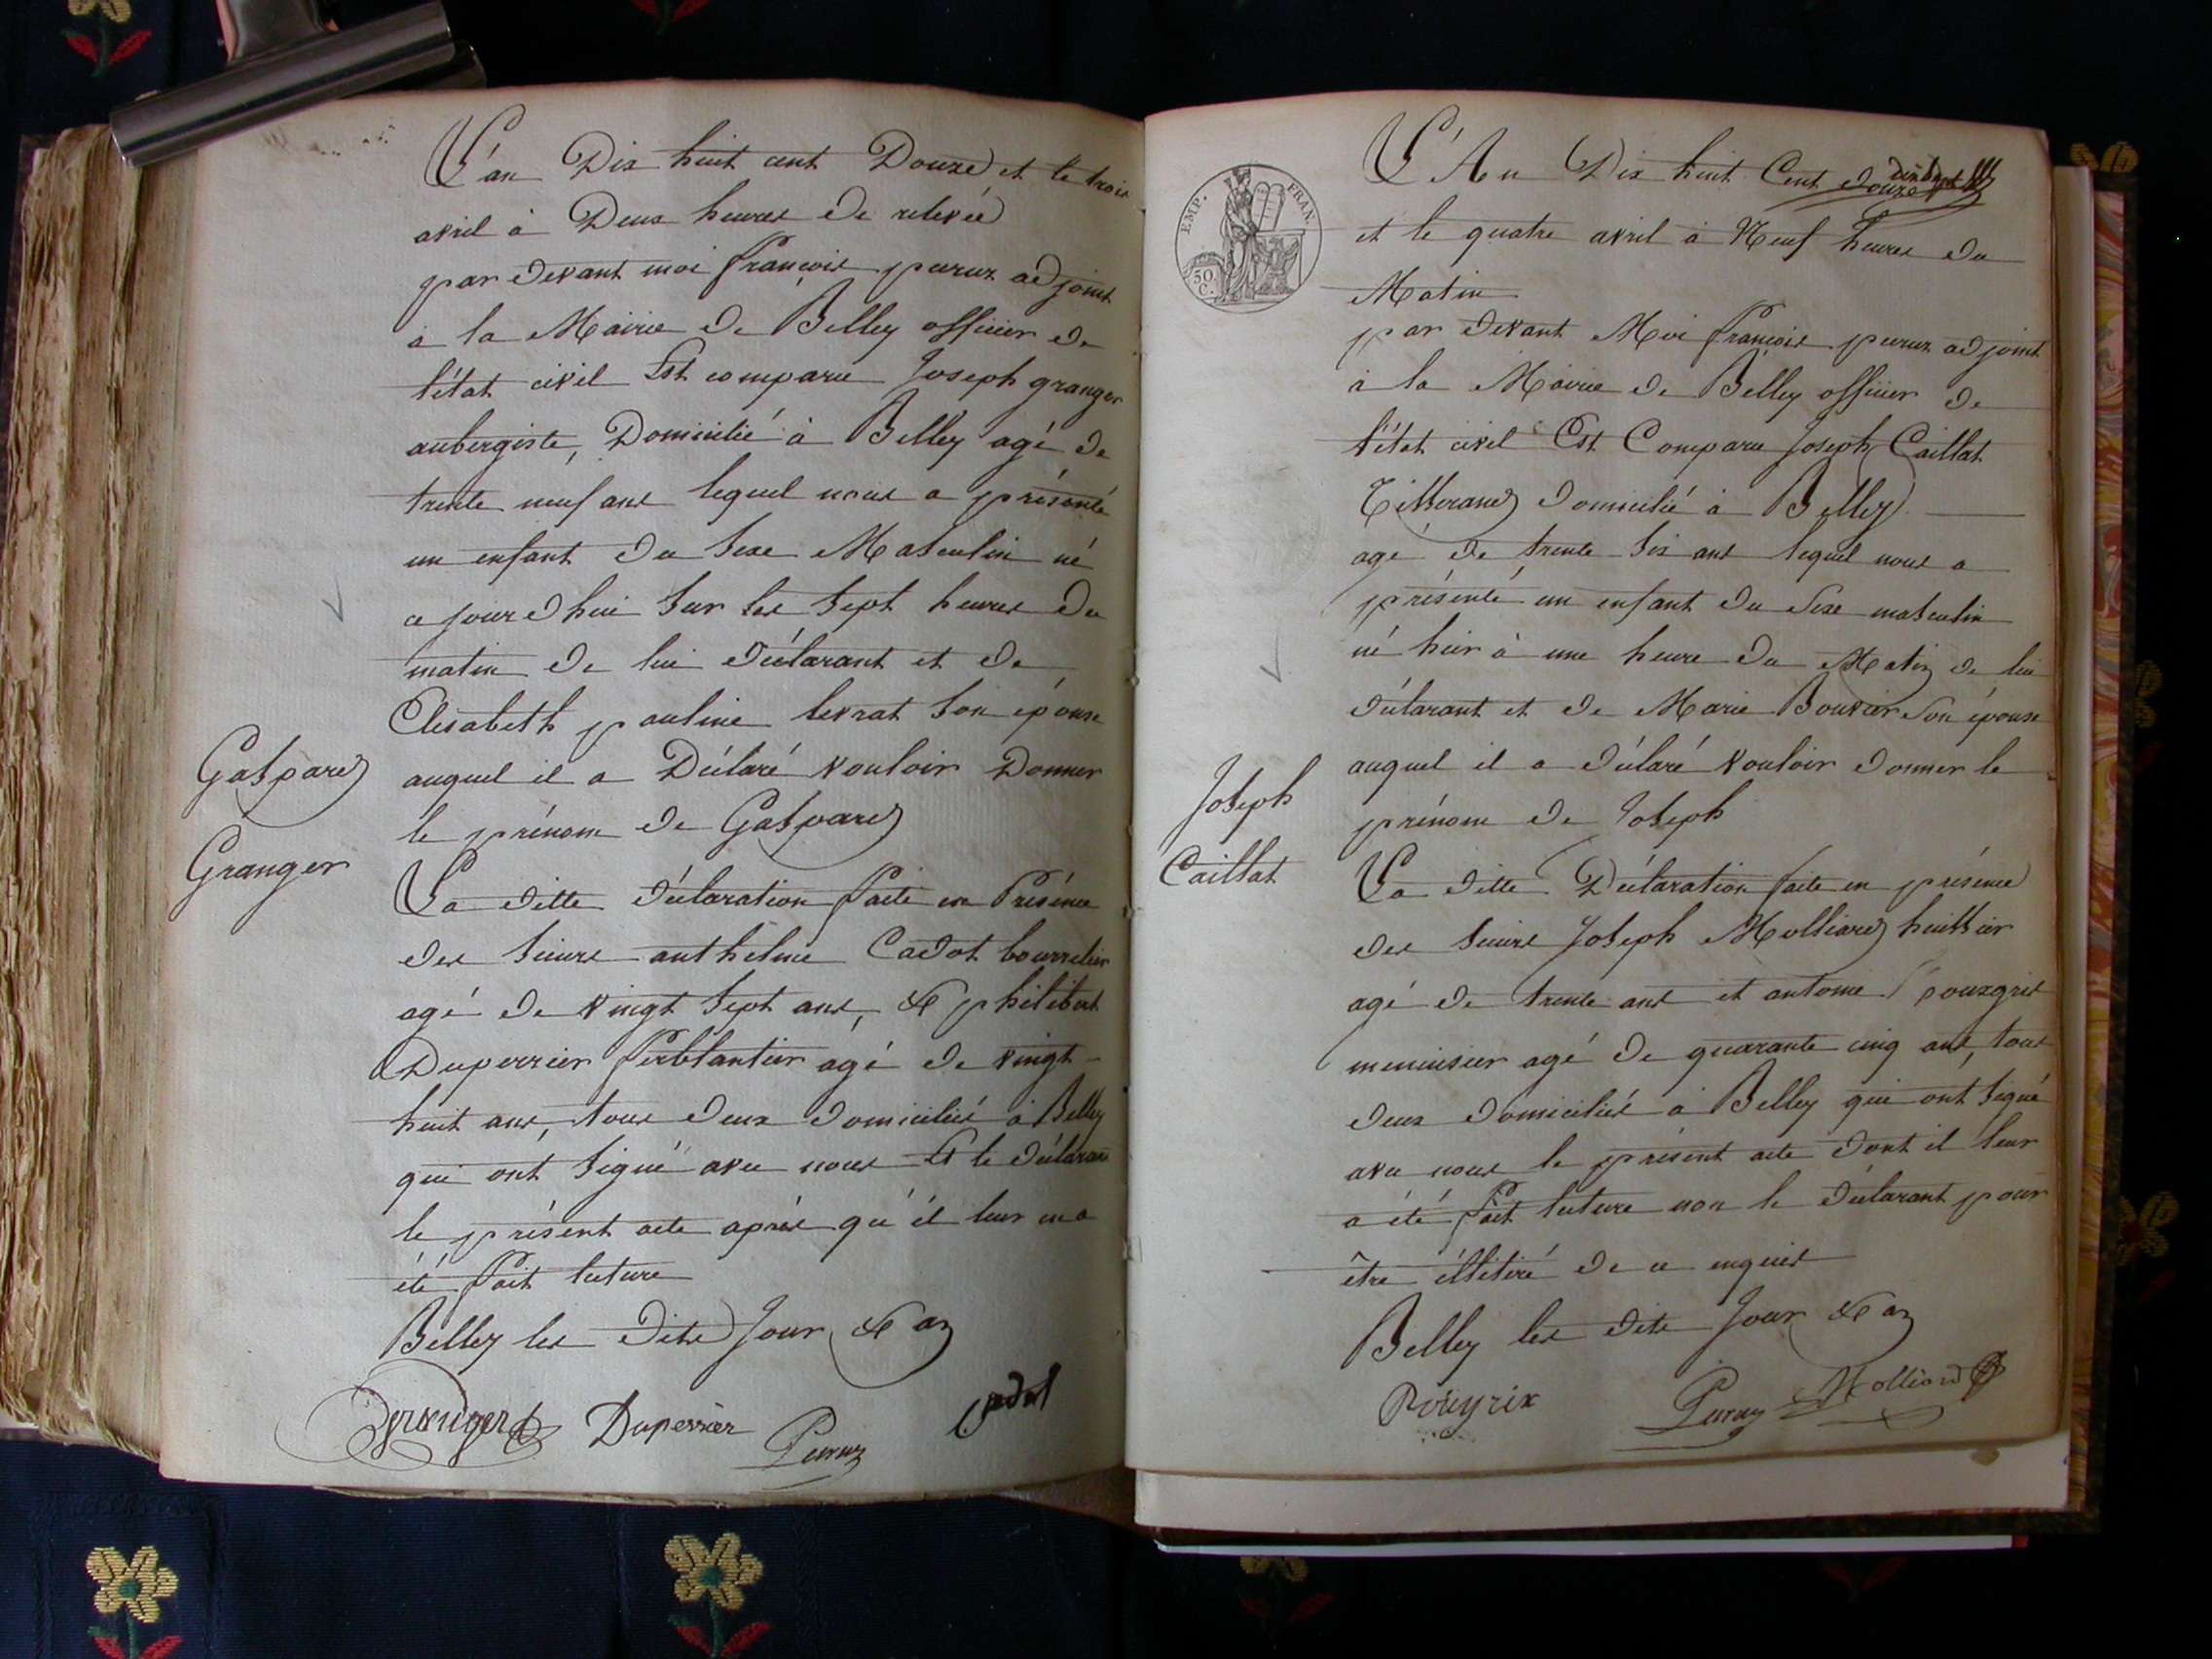 L'an Dix huit cent Douze et le trois
avril à Deux heures de relevée
par devant moi françois peruz adjoint
à la Mairie de Belley officier de
l'état civil Est comparu Joseph granger
aubergiste, Domicilié à Belley agé de
trente neuf ans lequel nous a présenté
un enfant du sexe Masculin né
ce jourd'hui sur les sept heures du
matin de lui déclarant et de
Elisabeth pauline levrat son épouse
auquel il a Déclaré vouloir Donner
le prénom de Gaspard
Gaspard
Granger
La ditte déclaration faite en Présence
des sieurs anthelme Cadot bourrelier
agé de vingt sept ans, & philibert
Duperrier ferblantier agé de vingt-
huit ans, tous deux domiciliés à Belley
qui ont signé avec nous Et le déclarant
le présent acte après qu'il leur en a
été fait lecture
Belley les dits Jour & an
granger Duperrier Peruz Cadot
EMP. FRAN.
50 C.
L'An Dix huit Cent douze
et le quatre avril à Neuf heures du
Matin
par devant Moi françois peruz adjoint
à la Mairie de Belley officier de
l'état civil Est Comparu Joseph Caillat
Tisserand domicilié à Belley
agé de trente six ans lequel nous a
présenté un enfant du sexe masculin
né hier à une heure du Matin de lui
déclarant et de Marie Bouvier son épouse
auquel il a déclaré vouloir donner le
prénom de Joseph
Joseph
Caillat
La ditte Déclaration faite en présence
des sieurs Joseph Molliard huissier
agé de trente ans et antoine
menuisier agé de quarante cinq ans, tous
deux domiciliés à Belley qui ont signé
avec nous le présent acte dont il leur
a été fait lecture non le déclarant pour
être illitéré de ce enquis
Belley les dits Jour & an
Peruz Molliard